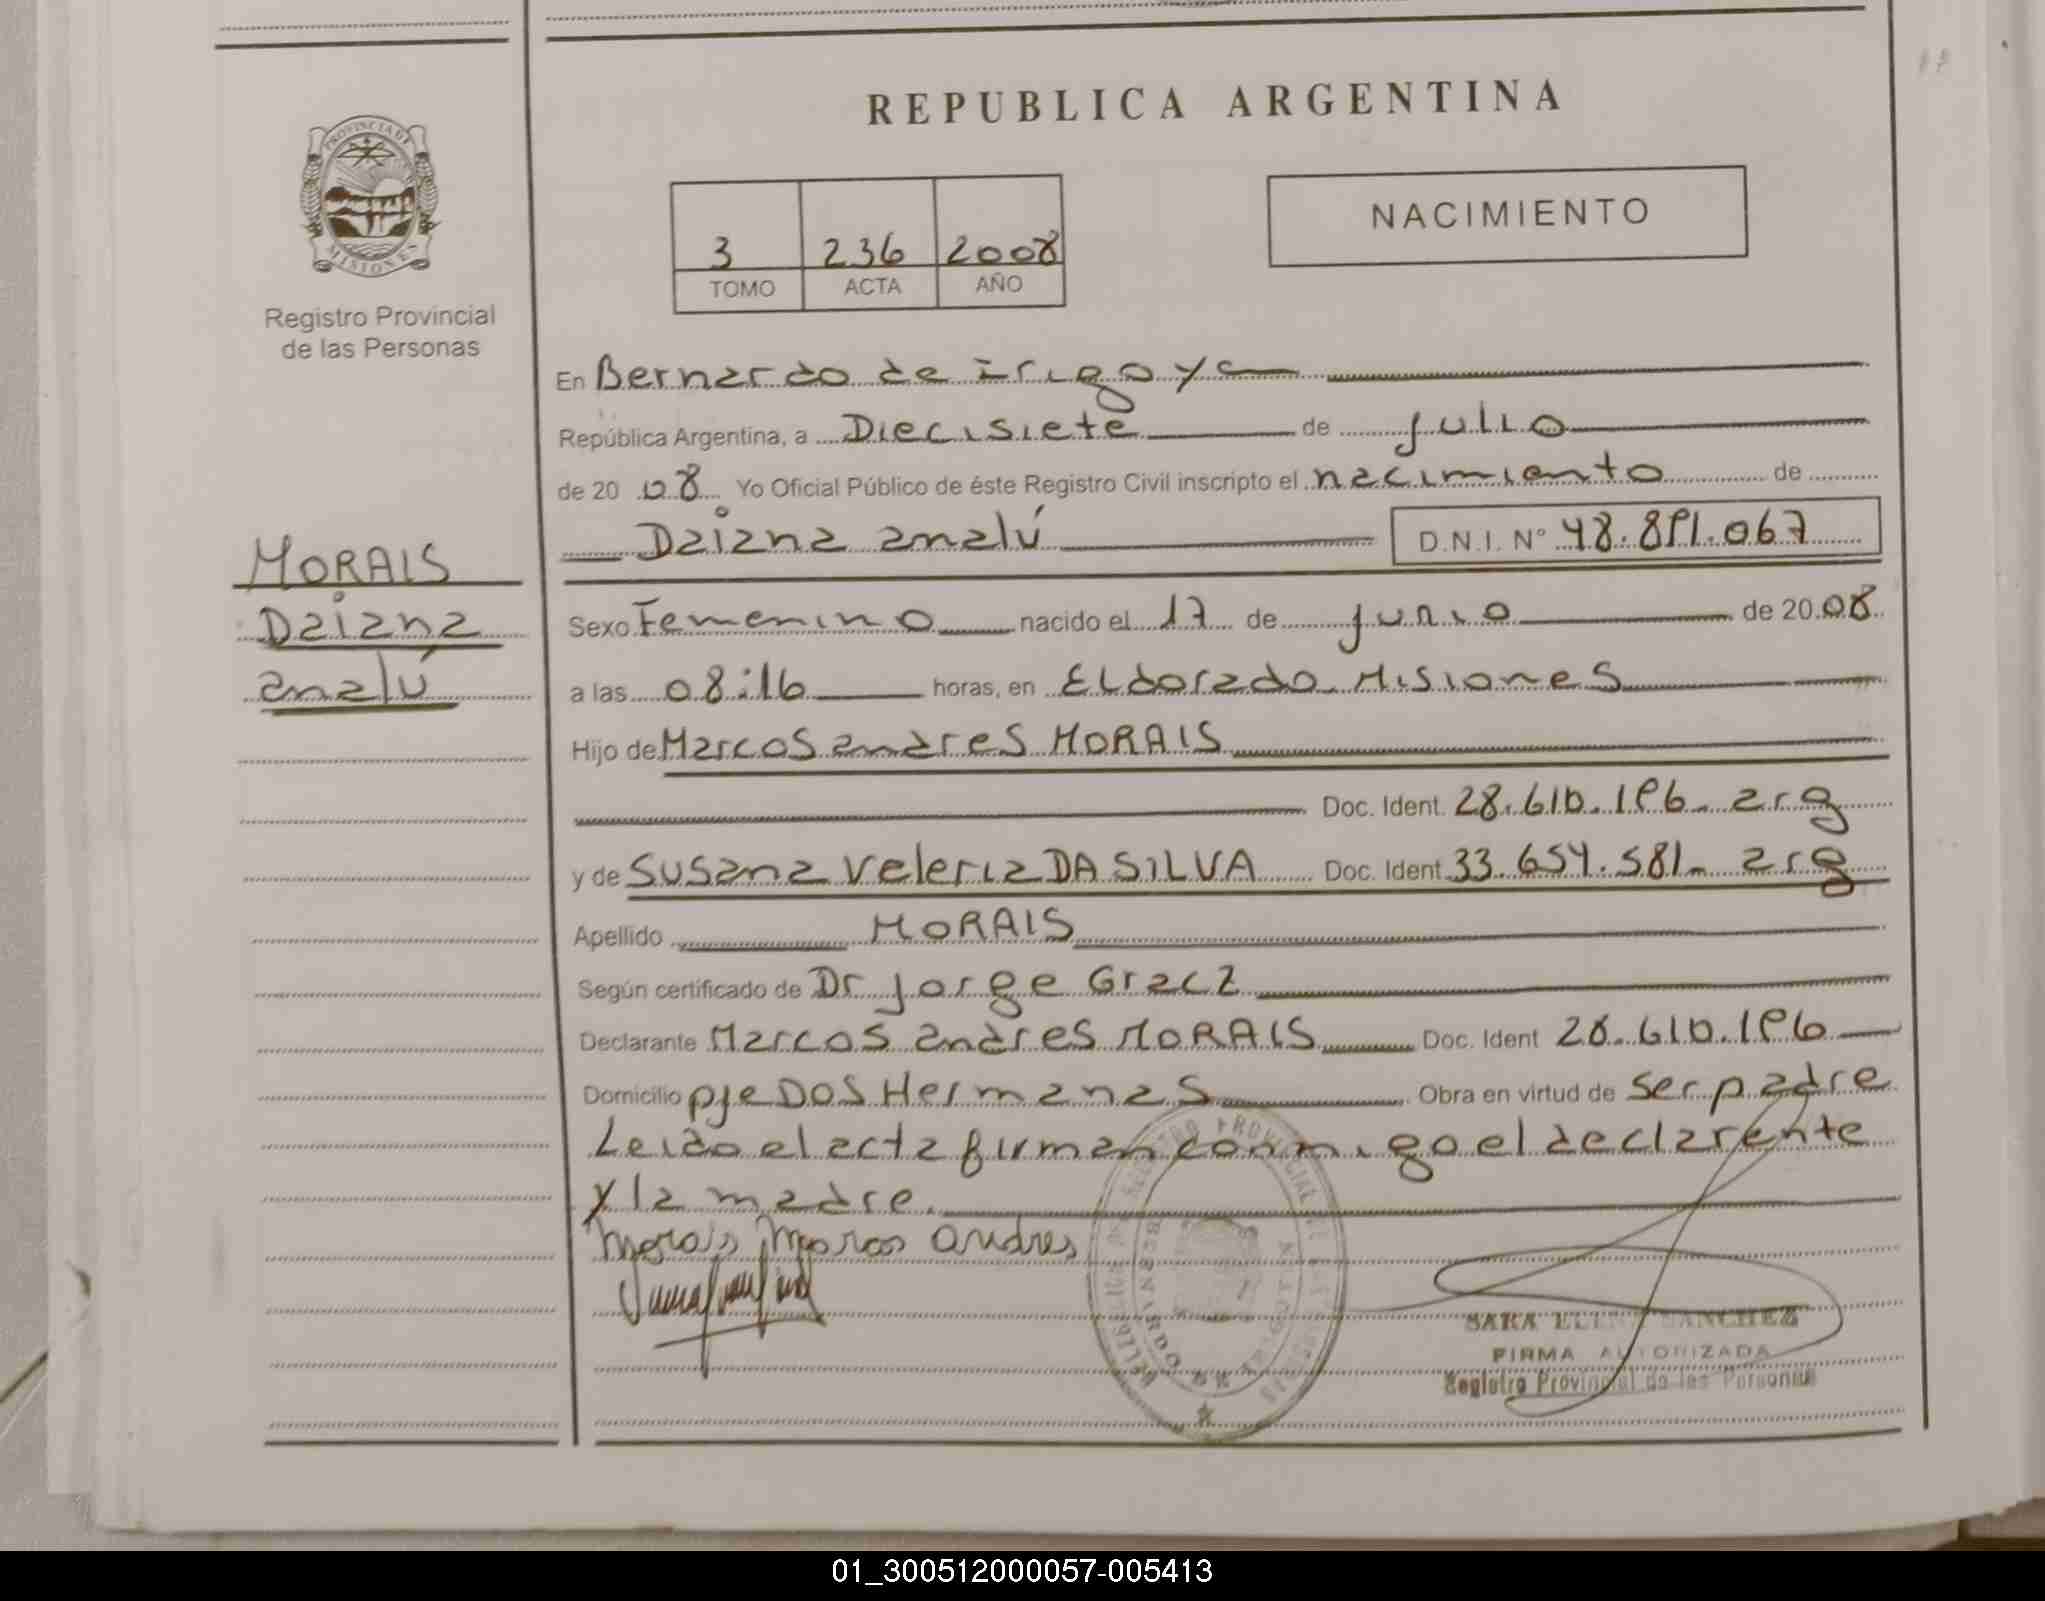 REPUBLICA ARGENTINA
PROVINCIA DE
MISIONES
Registro Provincial
de las Personas
3 236 2008
TOMO ACTA AÑO
NACIMIENTO
En Bernardo de Irigoye
República Argentina, a Diecisiete de julio
de 20 08 Yo Oficial Público de éste Registro Civil inscripto el nacimiento de
Daiana analú D.N.I. Nº 48.891.067
MORAIS
Daiana
analú
Sexo Femenino nacido el 17 de junio de 20 08
a las 08:16 horas, en Eldorado Misiones
Hijo de Marcos andres MORAIS
Doc. Ident. 28.610.196 arg
y de Susana Veleria DA SILVA Doc. Ident 33.654.581 arg
Apellido MORAIS
Según certificado de Dr Jorge Gracz
Declarante Marcos andres MORAIS Doc. Ident 28.610.196
Domicilio pje Dos Hermanas Obra en virtud de ser padre
Leido el acta firman conmigo el declarante
y la madre.
Morais Marcos andres
SARA SANCHEZ
FIRMA AUTORIZADA
Registro Provincial de las Personas
01_300512000057-005413